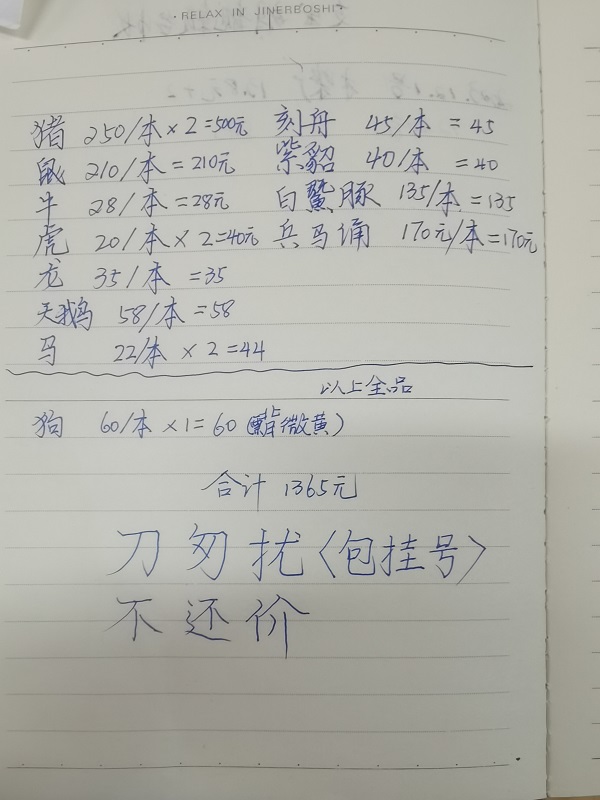 ·RELAX IN JINERBOSHI?
猪 250/本×2=500元 刻舟 45/本 =45
鼠 210/本=210元 紫貂 40/本 =40
牛 28/本=28元 白鱀豚 135/本=135
虎 20/本×2=40元 兵马俑 170元/本=170元
龙 35/本 =35
天鹅 58/本=58
马 22/本 ×2=44
以上全品
狗 60/本 ×1=60 (背微黄)
合计 1365元
刀匆扰〈包挂号〉
不还价